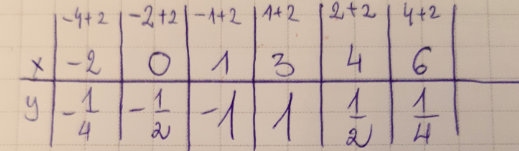 -4+2 -2+2 -1+2 1+2 2+2 4+2
x -2 0 1 3 4 6
y -1/4 -1/2 -1 1 1/2 1/4